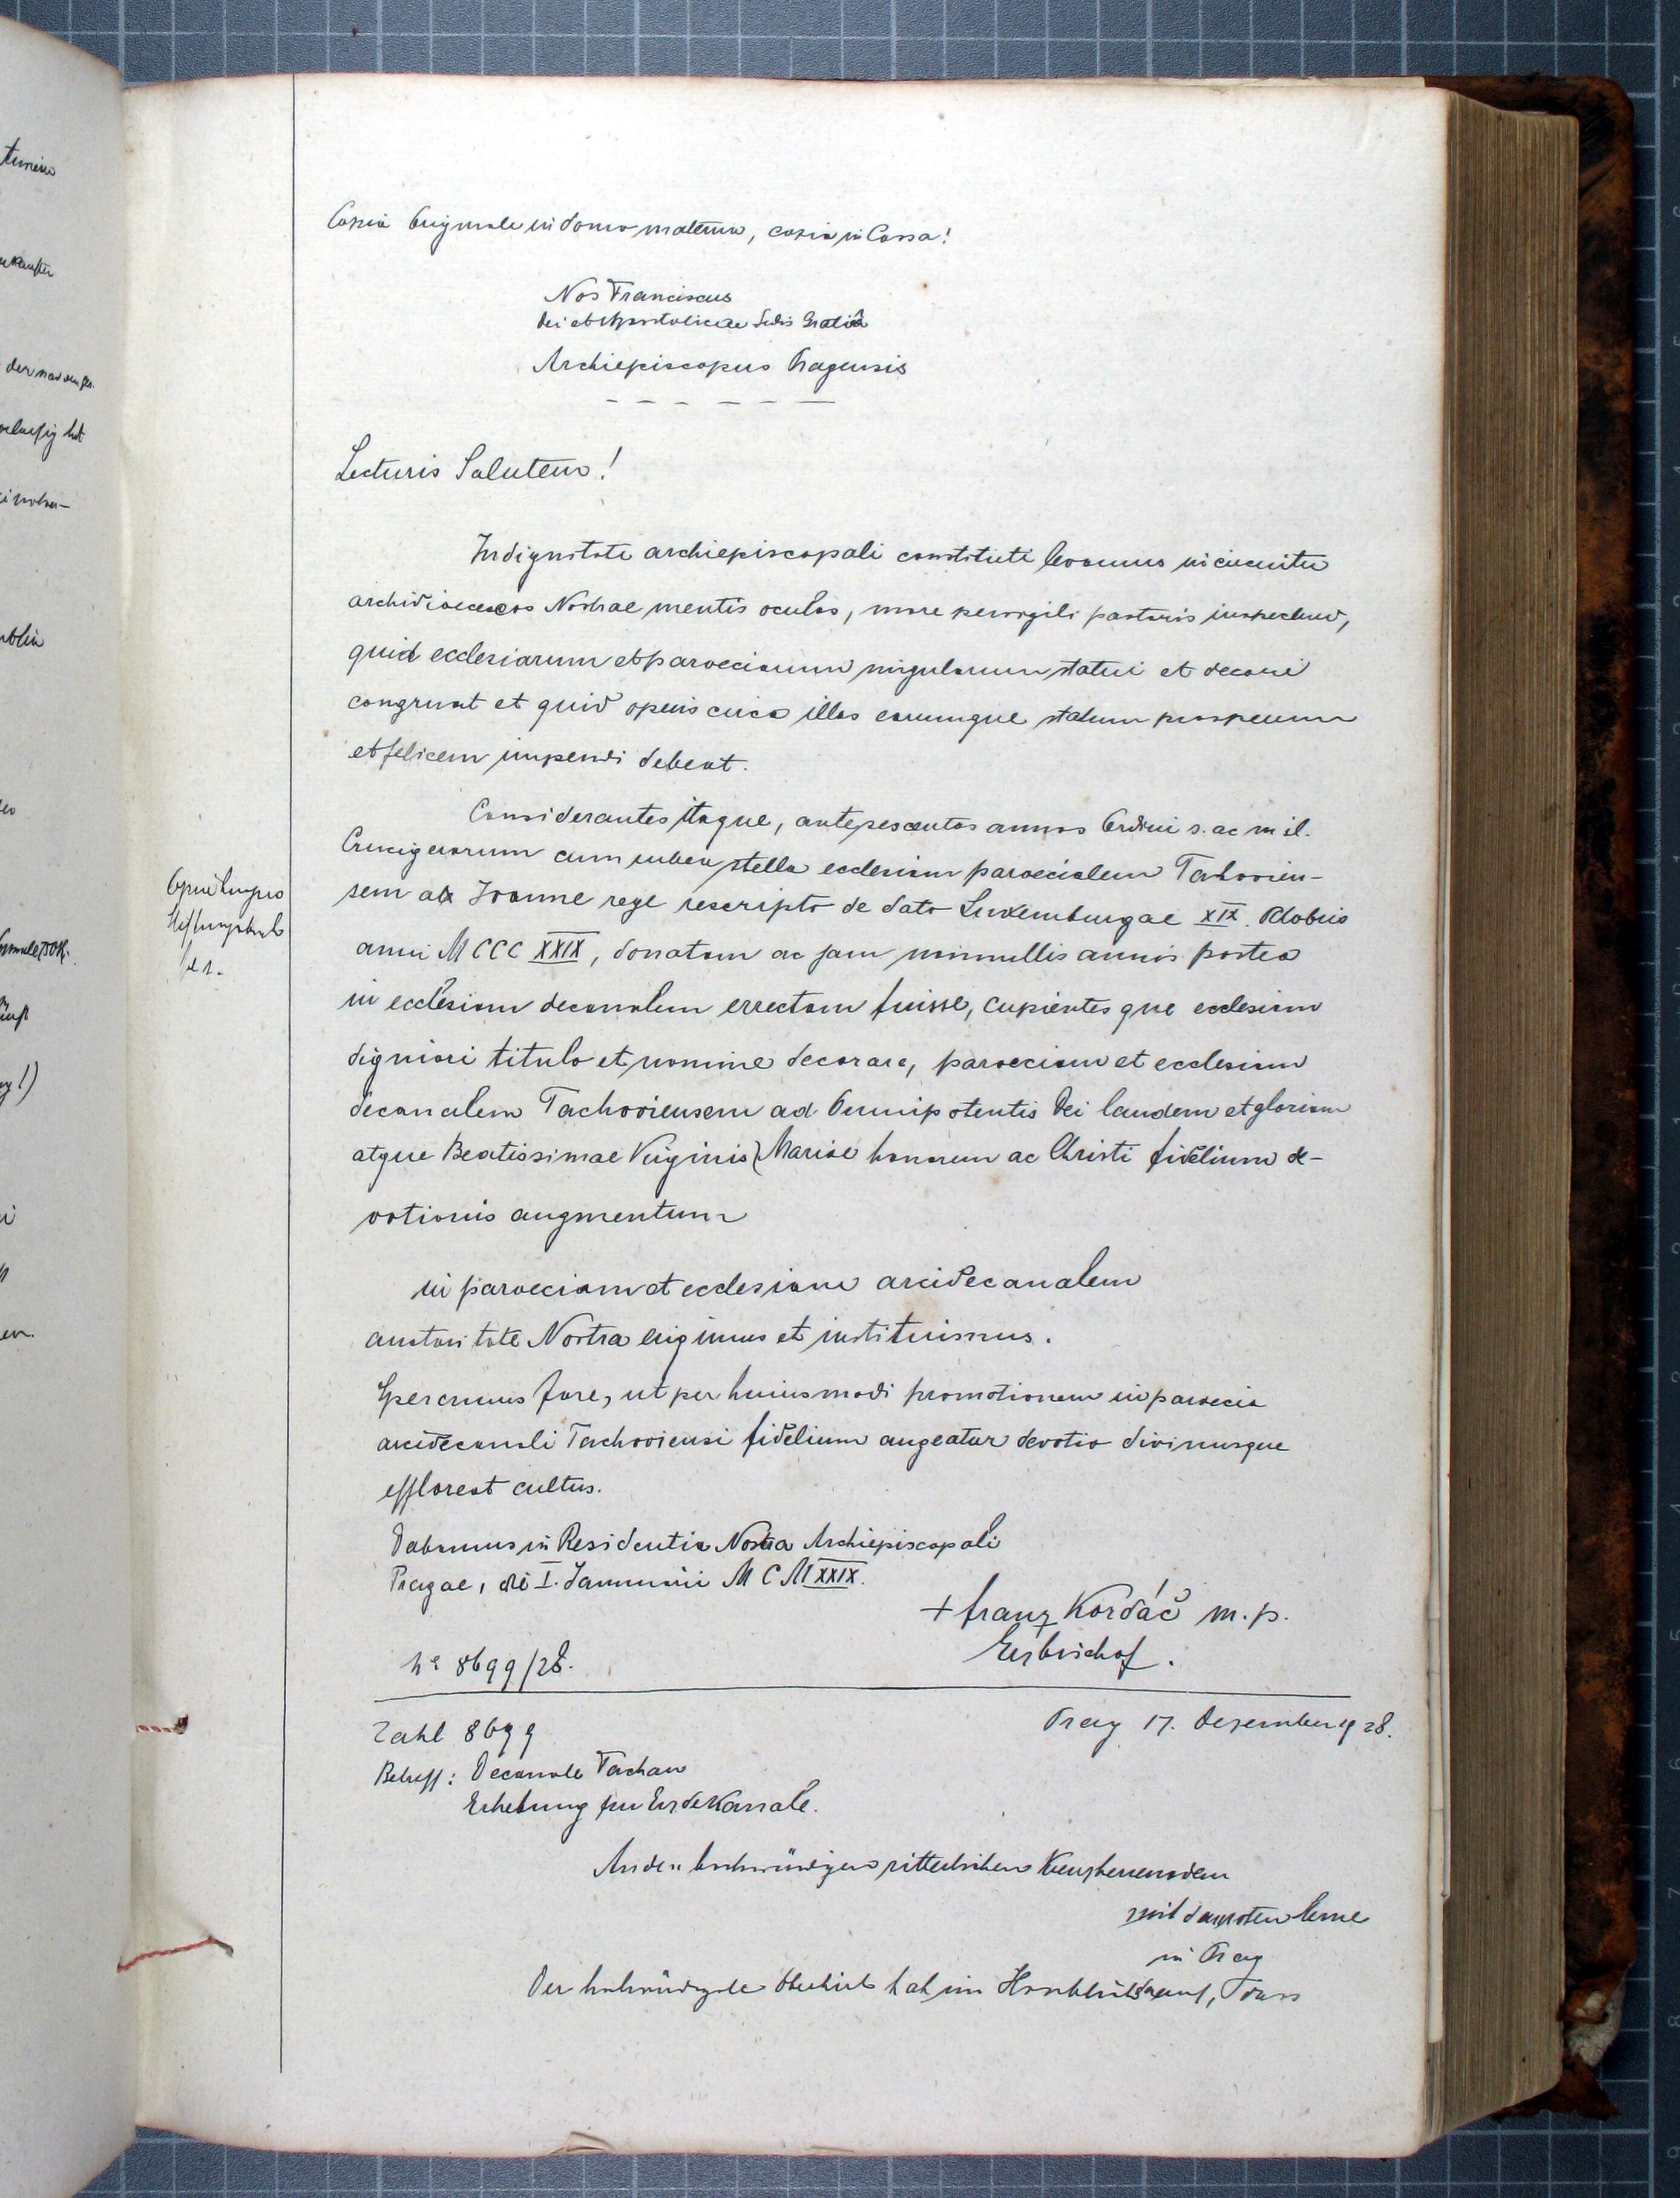 Copia Originale in domo materna, copia in Cassa!
Nos Franciscus
Dei et Apostolicae Sedis Gratiâ
Archiepiscopus Pragensis
Lecturis Salutem!
In dignitate archiepiscopali constituti levamus in circuitu
archidioeceseos Nostrae mentis oculos, more pervigili pastoris inspecturi,
quid ecclesiarum et paroeciarum singularum statui et decori
congruat et quid operis circa illas earumque statum prosperum
et felicem impendi debeat.
Considerantes itaque, ante sescentos annos Ordini s. ac mil.
Crucigerorum cum rubea stella ecclesiam paroecialem Tachovien-
sem a Joanne rege rescripto de dato Luxemburgae XIX. Octobris
anni MCCCXXIX, donatam ac jam nonnullis annis postea
in ecclesiam decanalem errectam fuisse, cupientesque ecclesiam
digniori titulo et nomine decorare, paroeciam et ecclesiam
decanalem Tachoviensem ad Omnipotentis Dei laudem et gloriam
atque Beatissimae Virginis Mariae honorem ac Christi fidelium de-
votionis augmentum
in paroeciam et ecclesiam arcidecanalem
auctoritate Nostra erigimus et instituimus.
Speramus fore, ut per huiusmodi promotionem in paroecia
arcidecanali Tachoviensi fidelium augeatur devotio divinusque
effloreat cultus.
Dabamus in Residentia Nostra Archiepiscopali
Pragae, die I. Januarii MCMXXIX.
+ Franz Kordáč m.p.
Erzbischof.
No 8699/28.
Zahl 8699
Prag 17. Dezember 1928.
Betreff: Decanale Tachau
Erhebung zur Erzdekanale.
An den hochwürdigen ritterlichen Kreuzherrenorden
mit dem roten Sterne
in Prag
Der hochwürdigste Oberhirt hat im Hinblick darauf, dass